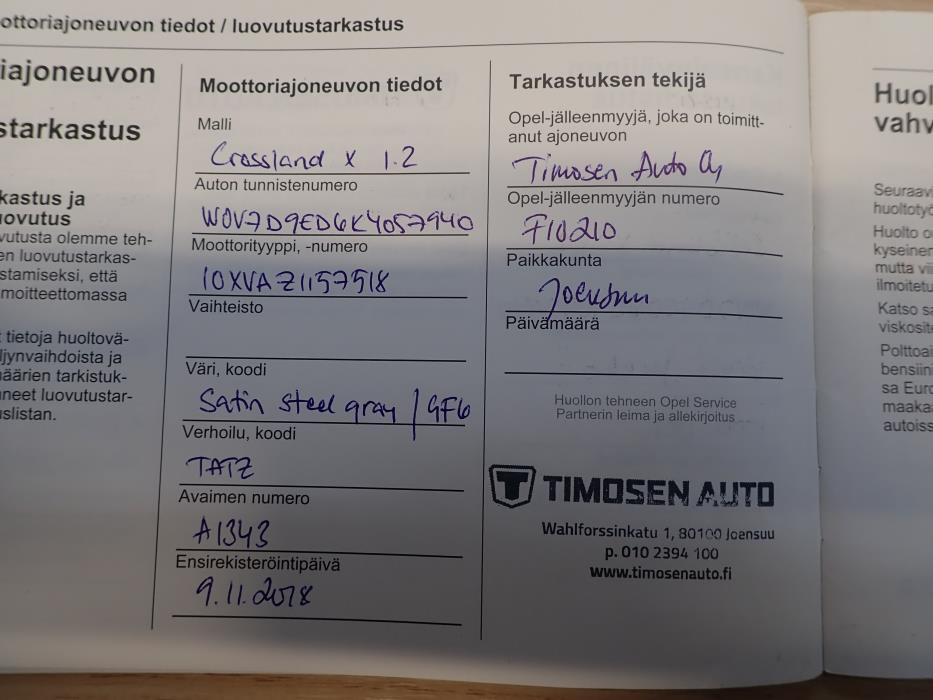 ottoriajoneuvon tiedot / luovutustarkastus
iajoneuvon
starkastus
kastus ja
uovutus
vutusta olemme teh-
en luovutustarkas-
stamiseksi, että
moitteettomassa
t tietoja huoltovä-
ljynvaihdoista ja
äärien tarkistuk-
neet luovutustar-
slistan.
Moottoriajoneuvon tiedot
Malli
Crossland X 1.2
Auton tunnistenumero
W0V7D9ED6K4057940
Moottorityyppi, -numero
10XVAZ1157518
Vaihteisto
Väri, koodi
Satin steel gray / GF6
Verhoilu, koodi
TATZ
Avaimen numero
A1343
Ensirekisteröintipäivä
9.11.2018
Tarkastuksen tekijä
Opel-jälleenmyyjä, joka on toimitt-
anut ajoneuvon
Timosen Auto Oy
Opel-jälleenmyyjän numero
F10210
Paikkakunta
Joensuu
Päivämäärä
Huollon tehneen Opel Service
Partnerin leima ja allekirjoitus
TIMOSEN AUTO
Wahlforssinkatu 1, 80100 Joensuu
p. 010 2394 100
www.timosenauto.fi
Huol
vahv
Seuraavi
huoltotyö
Huolto o
kyseinen
mutta vii
ilmoitetu
Katso sa
viskosite
Polttoai
bensiini
sa Euro
maaka
autoiss